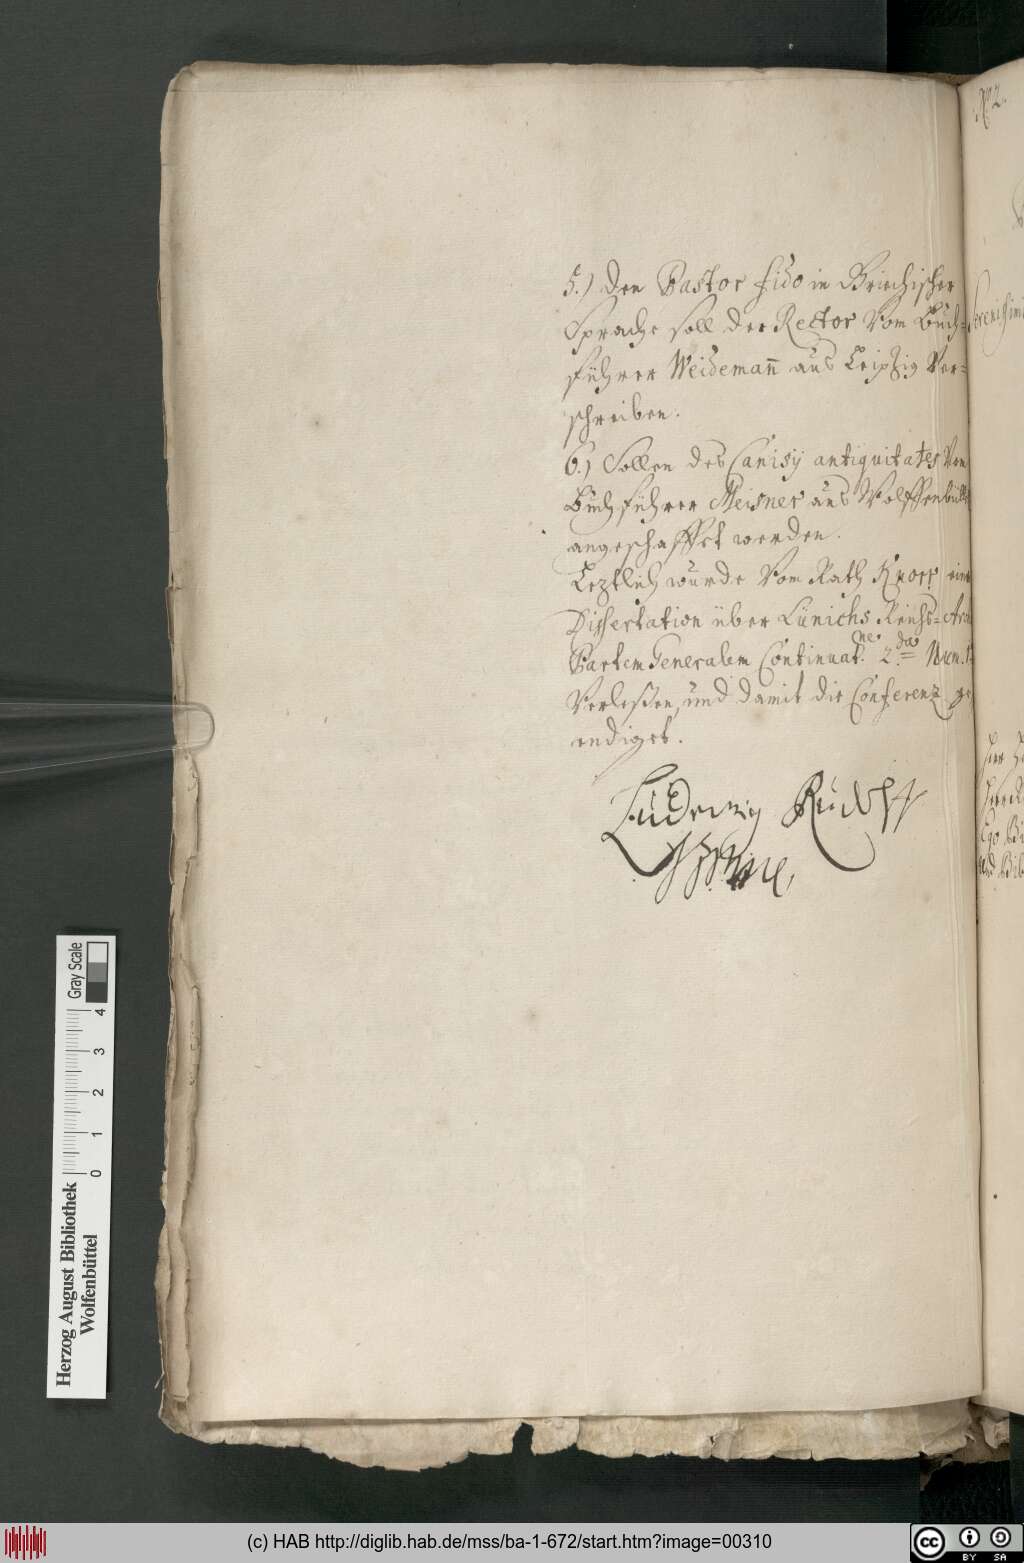 5.) Den Pastor fido in Griechischer
Sprache soll der Rector Vom Buch-
führer Weidemañ aus Leipzig Ver-
schreiben.
6.) Sollen des Canisÿ antiquitates Vom
Buchführer Meisner aus Wolffenbütt
angeschaffet werden.
Leztlich wurde Vom Rath Knorr eine
Dissertation über Lünichs Reichs-Arc
Partem Generalem Continuat.ne 2.da Num.
Verleßen, und damit die Conferenz ge
endiget.
Ludewig Rudolf
No 2.
Herzog August Bibliothek
Wolfenbüttel
0 1 2 3 4
Gray Scale
(c) HAB http://diglib.hab.de/mss/ba-1-672/start.htm?image=00310
cc BY SA